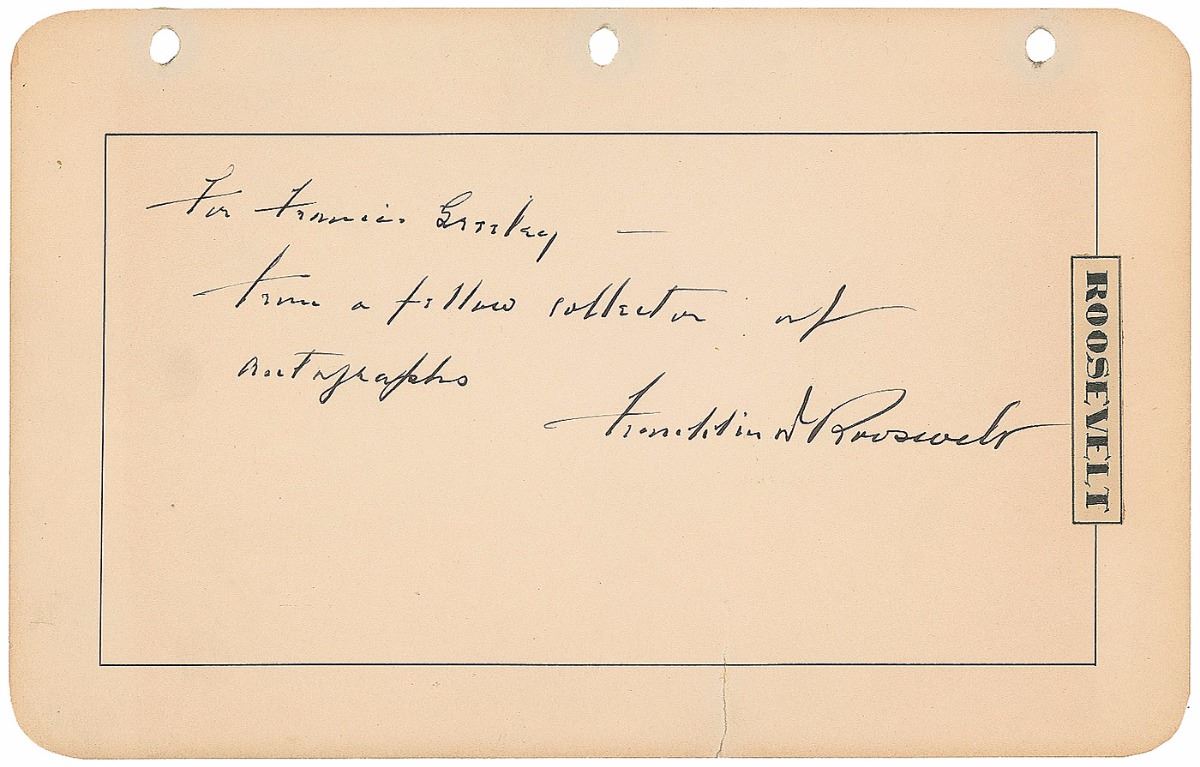 For Francis Greeley —
from a fellow collector of
autographs
Franklin D Roosevelt
ROOSEVELT